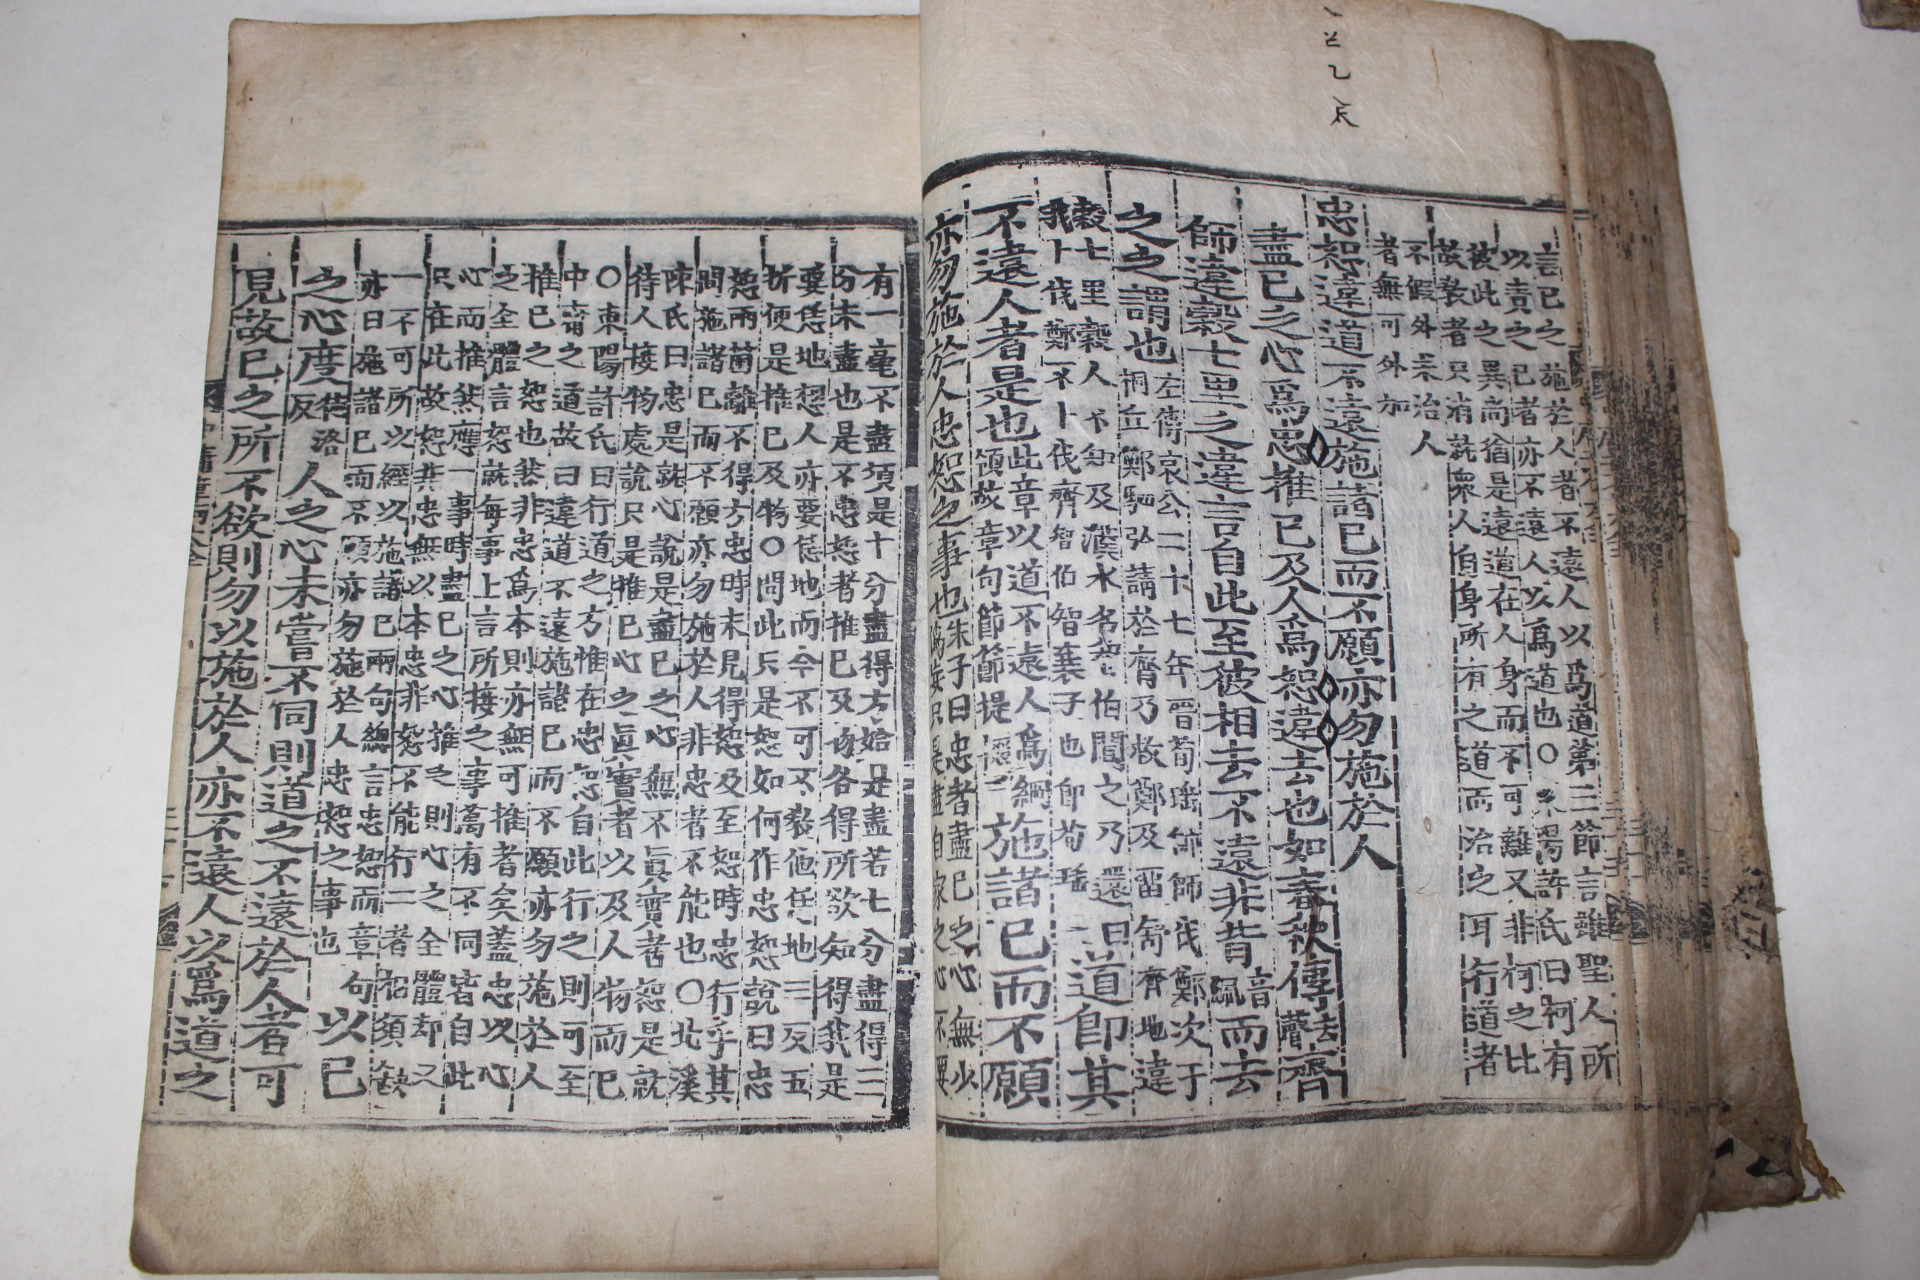 言己之施於人者不遠人以爲道第三節言雖聖人所
以責之己者亦不遠人以爲道也○東陽許氏曰柯有
彼此之異尚猶是遠道在人身而不可離又非柯之比
故敎者只消就衆人自身所有之道而治之耳行道者
不假外求治人
者無可外加
忠恕違道不遠施諸己而不願亦勿施於人
盡己之心爲忠推己及人爲恕違去也如春秋傳去聲齊
師違穀七里之違言自此至彼相去不遠非背音佩而去
之之謂也左傳哀公二十七年晉荀瑤帥師伐鄭次于
桐丘鄭駟弘請於齊乃救鄭及留舒齊地違
穀七里穀人不知及濮水名知伯聞之乃還曰
我卜伐鄭不卜伐齊智伯智襄子也卽荀瑤
道卽其
不遠人者是也此章以道不遠人爲綱
領故章句節節提掇
施諸己而不願
亦勿施於人忠恕之事也朱子曰忠者盡己之心無少
只是盡自家之心不要
有一毫不盡須是十分盡得方始是盡若七分盡得三
分未盡也是不忠恕者推己及物各得所欲知得我是
要恁地想人亦要恁地而今不可不敎他恁地三反五
折便是推己及物○問此只是恕如何作忠恕說曰忠
恕兩箇離不得方忠時未見得恕及至恕時忠行乎其
間施諸己而不願亦勿施於人非忠者不能也○北溪
陳氏曰忠是就心說是盡己之心無不眞實者恕是就
待人接物處說只是推己心之眞實者以及人物而已
○東陽許氏曰行道之方惟在忠恕自此行之則可至
中庸之道故曰違道不遠施諸己而不願亦勿施於人
推己之恕也然非忠爲本則亦無可推者矣蓋忠以心
之全體言恕就每事上言所接之事萬有不同皆自此
心而推然應一事時盡己之心推之則心之全體却又
只在此故恕非忠無以本忠非恕不能行二者相須缺
一不可所以經以施諸己兩句總言忠恕而章句
亦曰施諸己而不願亦勿施於人忠恕之事也
以己
之心度待洛反人之心未嘗不同則道之不遠於人者可
見故己之所不欲則勿以施於人亦不遠人以爲道之